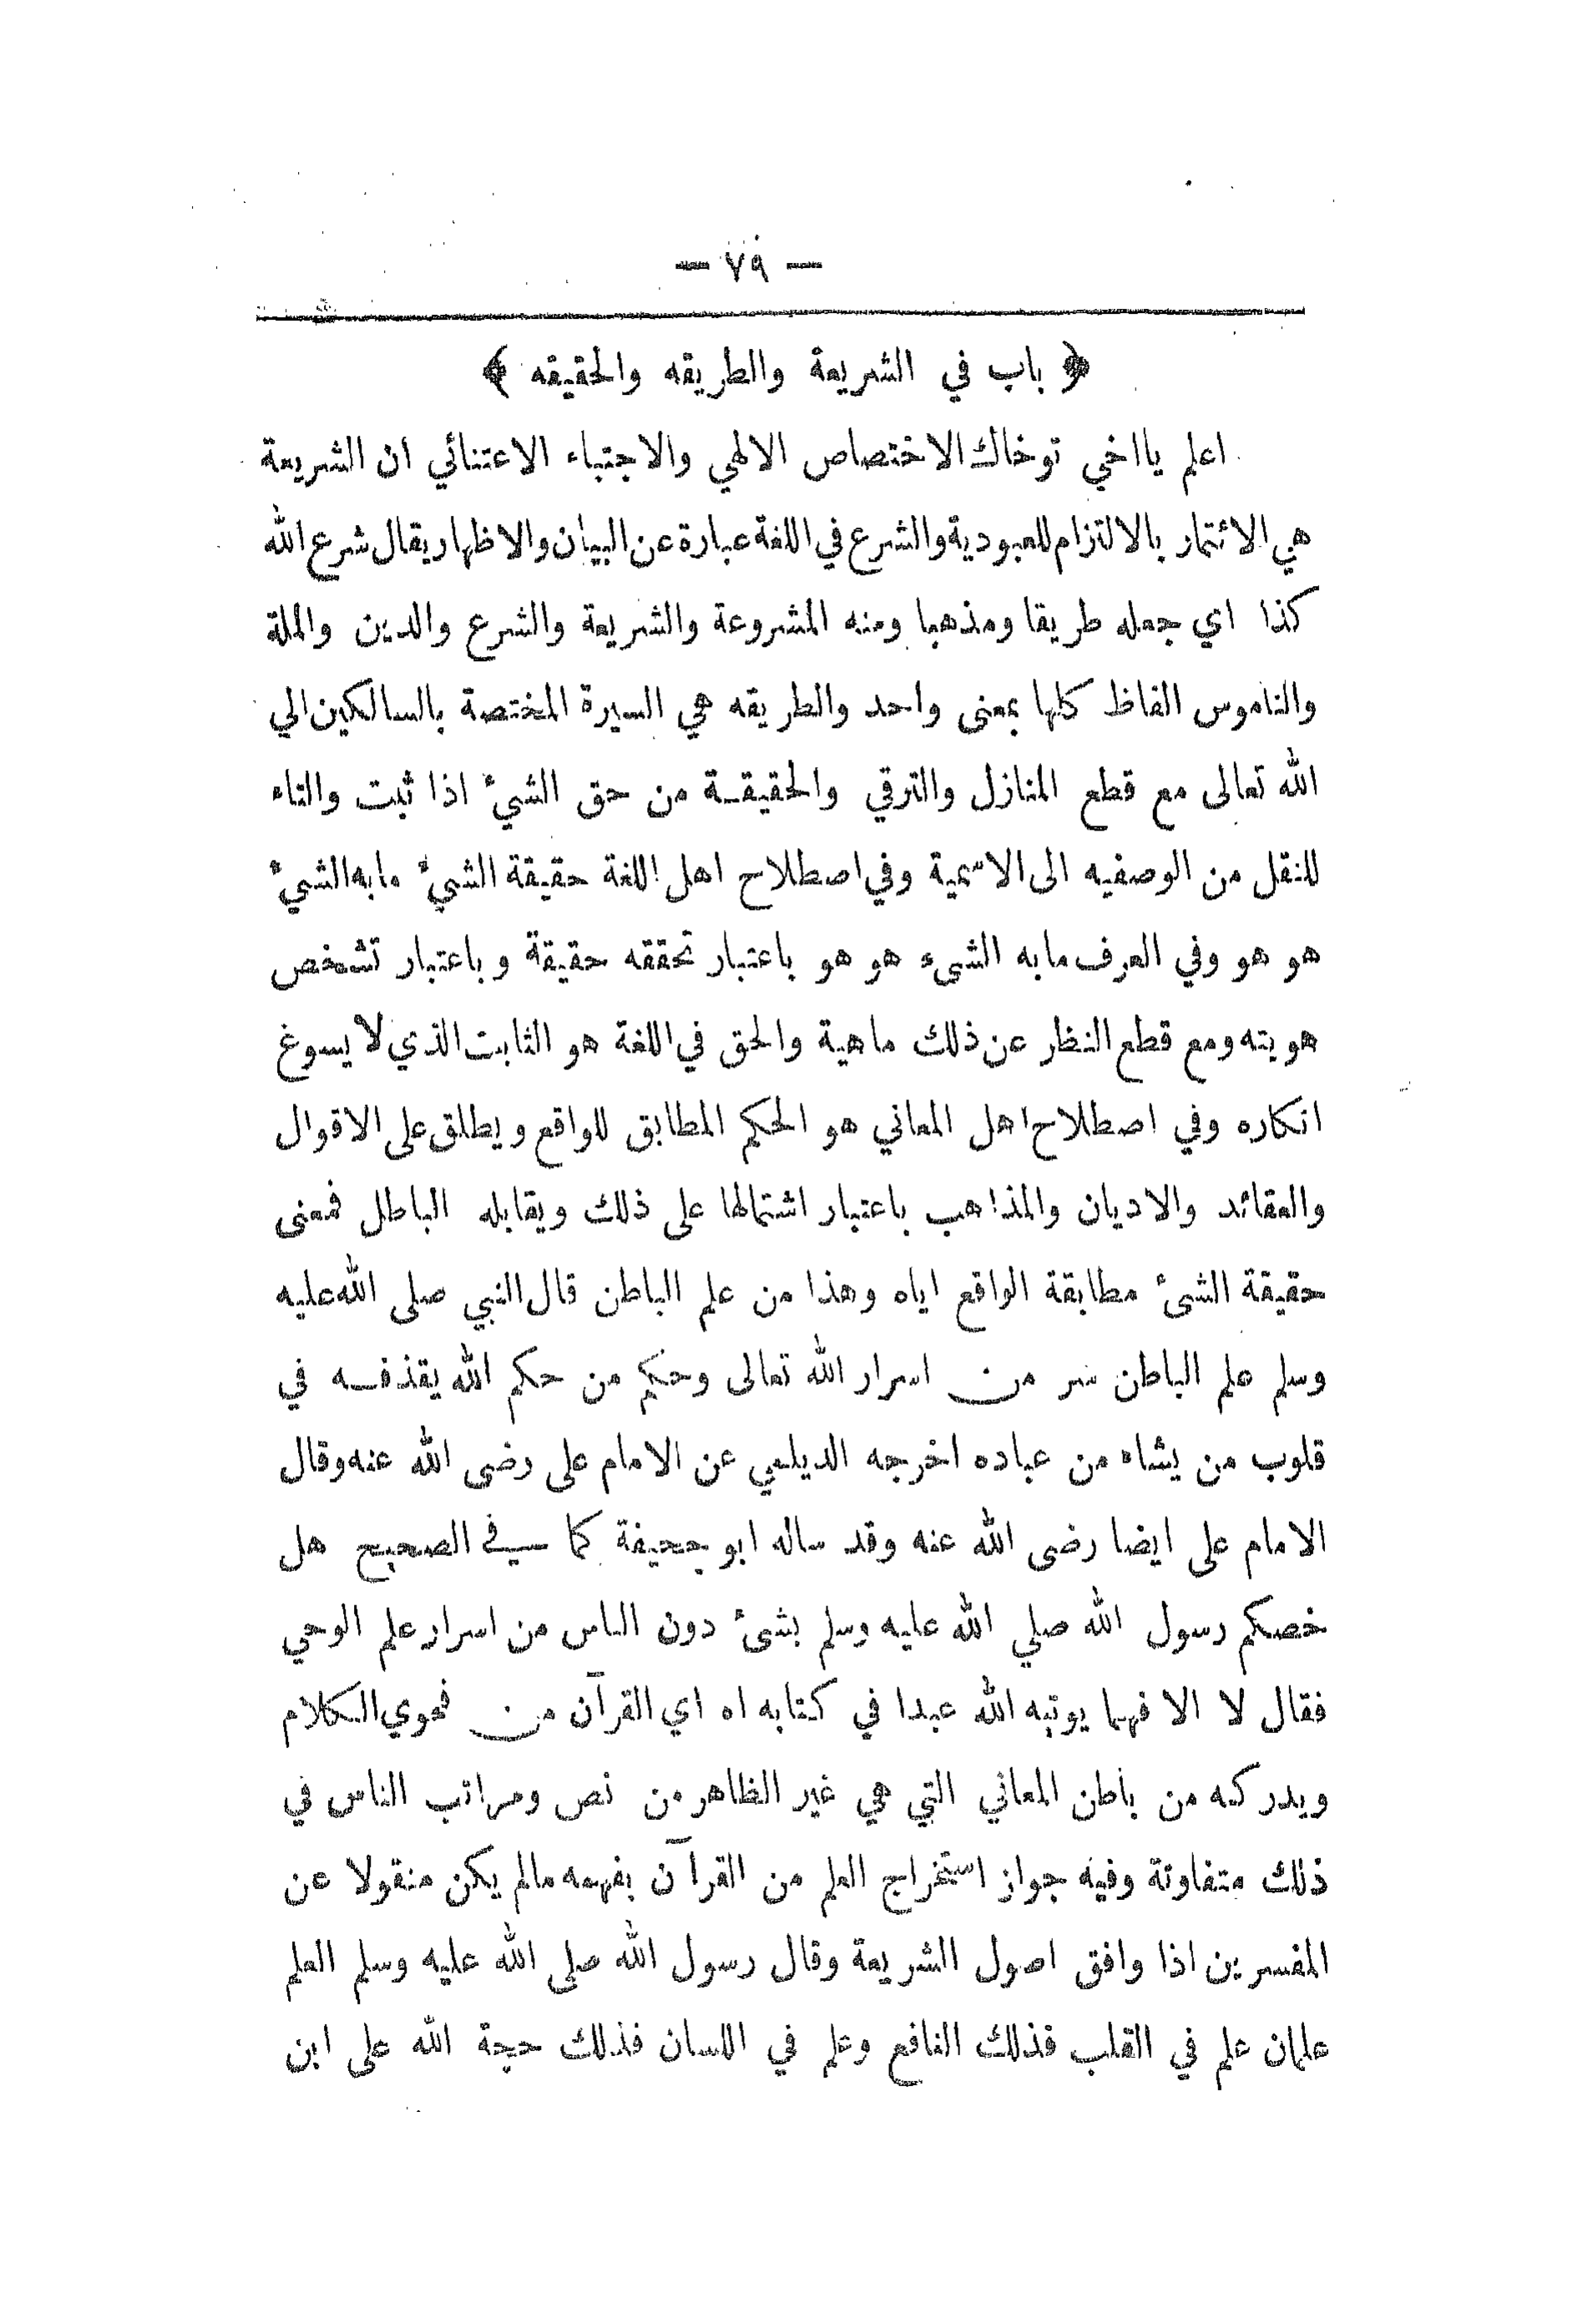 — ٧٩ —
﴿ باب في الشريعة والطريقه والحقيقه ﴾
اعلم يااخي توخاك الاختصاص الالهي والاجتباء الاعتنائي ان الشريعة
هي الائتمار بالالتزام للعبودية والشرع في اللغة عبارة عن البيان والاظهار يقال شرع الله
كذا اي جعله طريقا ومذهبا ومنه المشروعة والشريعة والشرع والدين والملة
والناموس الفاظ كلها بمعنى واحد والطريقه هي السيرة المختصة بالسالكين الي
الله تعالى مع قطع المنازل والترقي والحقيقة من حق الشيء اذا ثبت والتاء
للنقل من الوصفيه الى الاسمية وفي اصطلاح اهل اللغة حقيقة الشيء مابه الشيء
هو هو وفي العرف مابه الشيء هو هو باعتبار تحققه حقيقة وباعتبار تشخص
هويته ومع قطع النظر عن ذلك ماهية والحق في اللغة هو الثابت الذي لا يسوغ
انكاره وفي اصطلاح اهل المعاني هو الحكم المطابق للواقع ويطلق على الاقوال
والعقائد والاديان والمذاهب باعتبار اشتمالها على ذلك ويقابله الباطل فمعنى
حقيقة الشئ مطابقة الواقع اياه وهذا من علم الباطن قال النبي صلى الله عليه
وسلم علم الباطن سر من اسرار الله تعالى وحكم من حكم الله يقذفه في
قلوب من يشاه من عباده اخرجه الديلمي عن الامام على رضى الله عنه وقال
الامام على ايضا رضى الله عنه وقد ساله ابو جحيفة كما في الصحيح هل
خصكم رسول الله صلي الله عليه وسلم بشئ دون الناس من اسرار علم الوحي
فقال لا الا فهما يوتيه الله عبدا في كتابه اه اي القرآن من فحوي الكلام
ويدركه من باطن المعاني التي هي غير الظاهر من نص ومراتب الناس في
ذلك متفاوتة وفيه جواز استخراج العلم من القرآن بفهمه مالم يكن منقولا عن
المفسرين اذا وافق اصول الشريعة وقال رسول الله صلى الله عليه وسلم العلم
علمان علم في القلب فذلك النافع وعلم في اللسان فذلك حجة الله على ابن